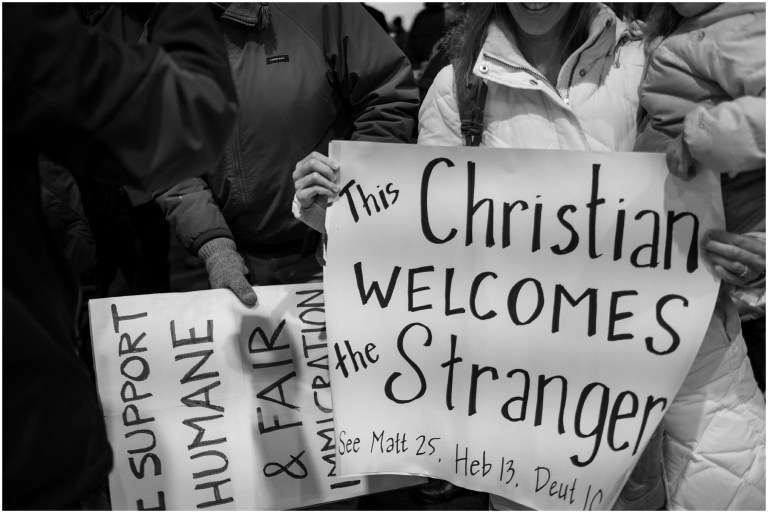 This Christian
WELCOMES
the Stranger
See Matt 25, Heb 13, Deut 10
E SUPPORT
HUMANE
& FAIR
IMMIGRATION